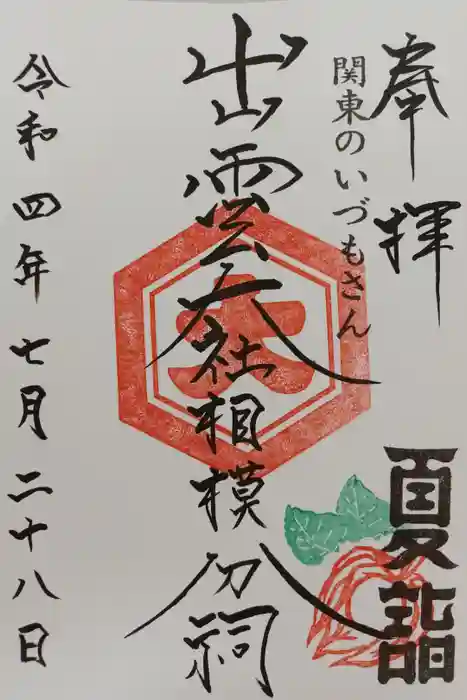 奉拝
関東のいづもさん
出雲大社相模分祠
大
夏詣
令和四年七月二十八日